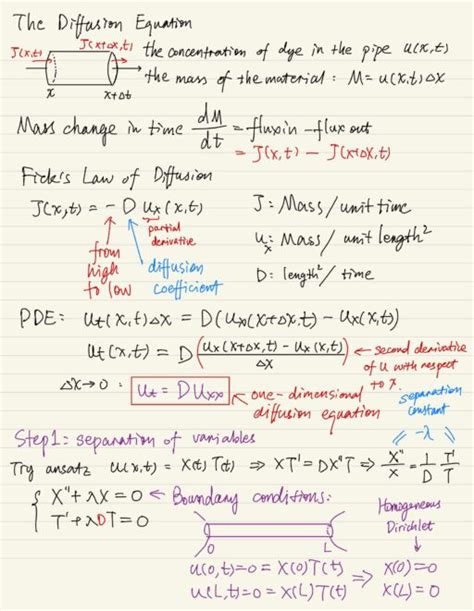 The Diffusion Equation
J(x,t) J(x+Δx,t) the concentration of dye in the pipe u(x,t)
the mass of the material: M=u(x,t)Δx
x x+Δt
Mass change in time dM/dt = flux in - flux out
= J(x,t) - J(x+Δx,t)
Fick's Law of Diffusion
J(x,t) = - D ux(x,t)
partial derivative
from high to low
diffusion coefficient
J: Mass/unit time
ux: Mass/unit length²
D: length²/time
PDE: ut(x,t)Δx = D(ux(x+Δx,t) - ux(x,t))
ut(x,t) = D((ux(x+Δx,t) - ux(x,t))/Δx) ← second derivative of u with respect to x.
Δx→0: ut = Duxx ← one-dimensional diffusion equation
separation constant
Step1: separation of variables
-λ
Try ansatz u(x,t) = X(x)T(t) ⇒ XT' = DX''T ⇒ X''/X = 1/D T'/T
{ X''+λX=0 ← Boundary conditions:
T'+λDT=0
Homogeneous Dirichlet
0 L
u(0,t)=0 = X(0)T(t) ⇒ X(0)=0
u(L,t)=0 = X(L)T(t) X(L)=0